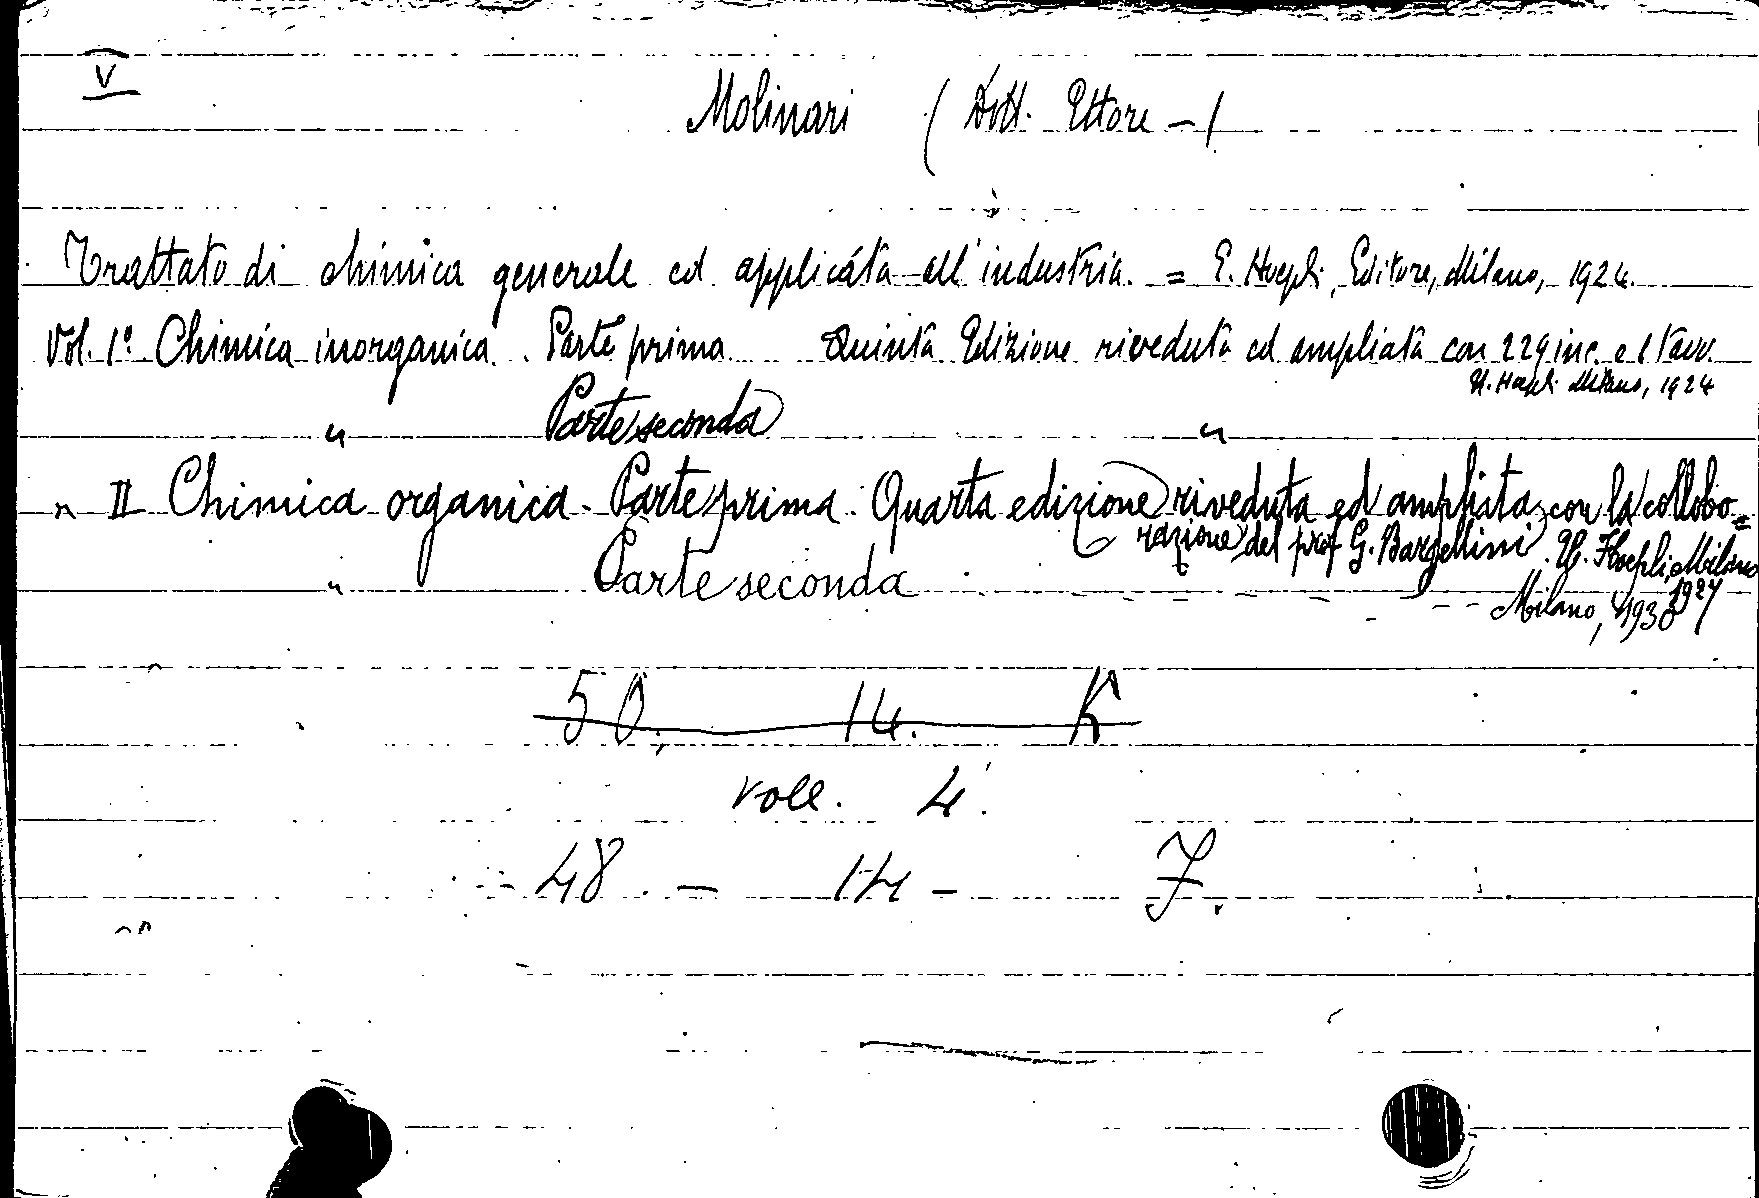 V
Molinari ( Dott. Ettore - )
Trattato di chimica generale ed applicata all'industria. = E. Hoepli, Editore, Milano, 1924.
Vol. 1º Chimica inorganica. Parte prima Quinta Edizione riveduta ed ampliata con 229 inc. e 1 tav.
U. Hoepli Milano, 1924
" Parte seconda "
" II Chimica organica. Parte prima. Quarta edizione riveduta ed ampliata con la collabo=
razione del prof G. Bargellini. U. Hoepli, Milano
1927
" Parte seconda - - - - - Milano, 1930
50. 14. K
voll. 4.
48 - 14 - 7.